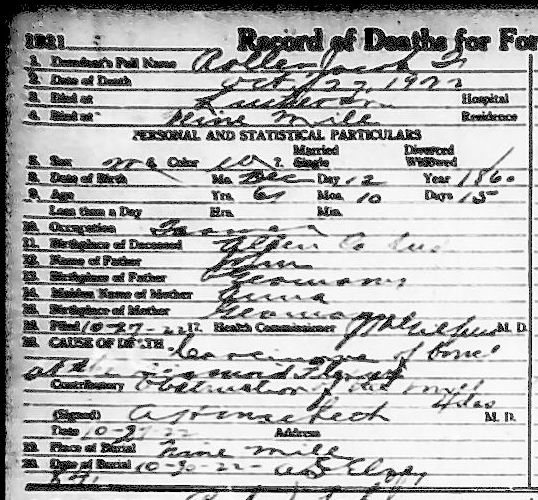 1921 Record of Deaths for For
1. Decedent's Full Name Roller Jacob F
2. Date of Death Oct 27, 1922
3. Died at Hospital
4. Died at Nine Mile Residence
PERSONAL AND STATISTICAL PARTICULARS
Married Divorced
5. Sex m 6. Color W 7. Single Widowed
8. Date of Birth Mo. Dec Day 12 Year 1860
9. Age Yrs. 61 Mos. 10 Days 15
Less than a Day Hrs. Min.
10. Occupation Farmer
21. Birthplace of Deceased Allen Co Ind
22. Name of Father John
23. Birthplace of Father Germany
24. Maiden Name of Mother Anna
25. Birthplace of Mother Germany
Filed 10-27-22 17. Health Commissioner M. D.
CAUSE OF DEATH Carcinoma of bowel
at the sigmoid flexure
Contributory Obstruction of the bowel
(Signed) M. D.
Date 10-27-22 Address
19. Place of Burial Nine Mile
20. Date of Burial 10-30-22